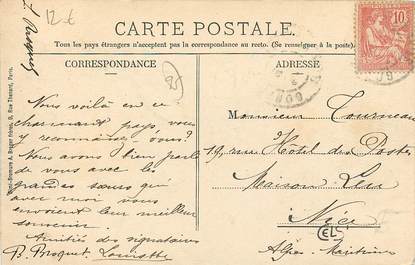 12 €
CARTE POSTALE
Tous les pays étrangers n'acceptent pas la correspondance au recto. (Se renseigner à la poste).
CORRESPONDANCE
ADRESSE
10
Nous voilà en ce
charmant pays, vous
y reconnaissez-vous?
Nous avons bien parlé
de vous avec les
grandes sœurs qui
avec moi vous
envoient leur meilleur
souvenir.
Amitiés des signataires
Monsieur Tourneau
19, rue Hôtel des Postes
Maison
Nice
Alpes Maritimes